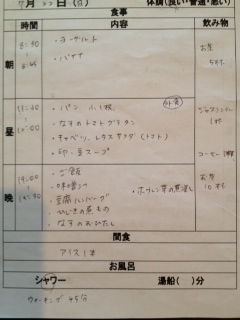 7月22日(日) 体調(良い・普通・悪い)
食事
時間 内容 飲み物
朝
8:30
8:45
・ヨーグルト
・バナナ
お茶
5杯
昼
外食
・パン 小1枚
・なすのトマトグラタン
・キャベツ、レタスサラダ(トマト)
・卵・豆スープ
1杯
コーヒー 1杯
晩
19:00
・ご飯
・味噌汁
・豆腐ハンバーグ
・ひじきの煮もの
・なすのおひたし
お茶
10杯
間食
アイス1本
お風呂
シャワー 湯船( )分
ウォーキング 45分